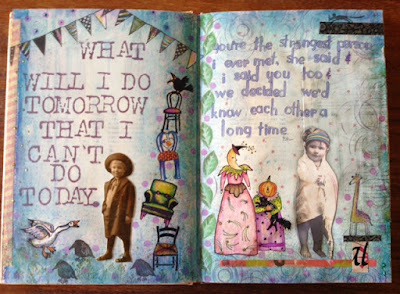 WHAT
WILL I DO
TOMORROW
THAT I
CAN'T
DO
TODAY.
you're the strangest person
i ever met, she said &
i said you too &
we decided we'd
know each other a
long time